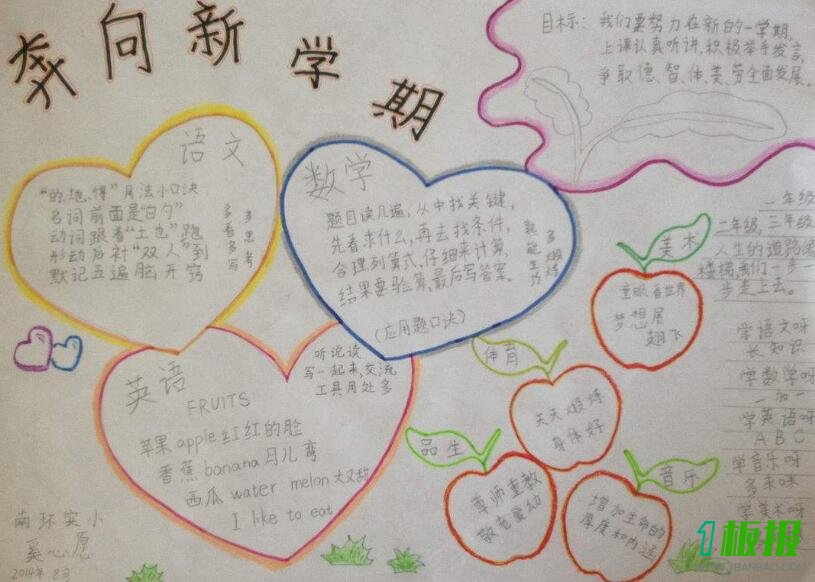 奔向新学期
目标：我们要努力在新的一学期，
上课认真听讲，积极举手发言，
争取德、智、体、美、劳全面发展。
语文
“的、地、得”用法小口决
名词前面是“白勺”
动词跟着“土也”跑
形动后补“双人”到
默记五遍脑开窍
多看多写
多思考
数学
题目读几遍，从中找关键，
先看求什么，再去找条件，
合理列算式，仔细来计算，
结果要验算，最后写答案。
（应用题口诀）
熟能生巧
多煅炼
英语
FRUITS
苹果 apple 红红的脸
香蕉 banana 月儿弯
西瓜 water melon 大又甜
I like to eat
听说读
写一起来，交流
工具用处多
美术
重眼看世界
梦想展
翅飞
体育
天天煅炼
身体好
品生
尊师重教
敬老爱幼
音乐
增加生命的
厚度和内涵
一年级
二年级，三年级
人生的道路像
楼梯，我们一步一
步走上去。
学语文呀
长知识
学数学呀
一加一
学英语呀
A B C
学音乐呀
多来咪
学美术呀
南环实小
奚心愿
2014年8月
1板报